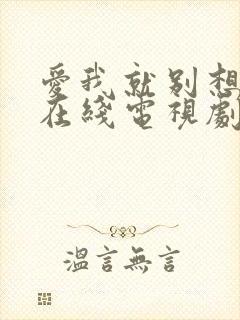 愛我就别想
在綫電視劇
溫言無言